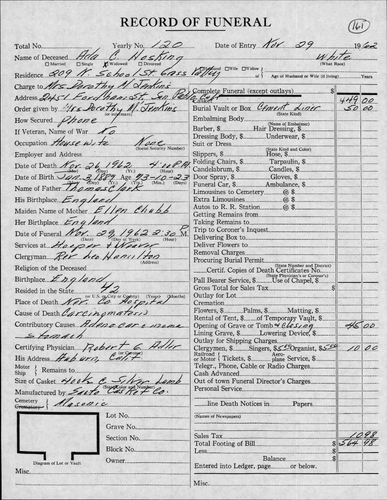 RECORD OF FUNERAL
161
Total No. Yearly No. 120 Date of Entry Nov 29 1962
Name of Deceased Ada C Hosking White
Married Single Widowed Divorced (What Race)
Residence. 209 N. School St Grass Valley
Husband Wife Widow of Age of Husband or Wife (if living) Years
Charge to Mrs Dorothy M Jenkins
Address
Complete Funeral (except outlays) $
Casket 449 00
Order given by Mrs Dorothy M Jenkins
Burial Vault or Box Cement Liner 50 00
(State Kind)
How Secured Phone
Embalming Body $
(Name of Embalmer)
Barber, $ Hair Dressing, $
If Veteran, Name of War No
Dressing Body, $ Underwear, $
Occupation Housewife None
(Social Security Number)
Suit or Dress
(State Kind and Color)
Employer and Address
Slippers, $ Hose, $
Folding Chairs, $ Tarpaulin, $
Date of Death Nov 26 1962 4:00 P.M.
Candelabrum, $ Candles, $
Date of Birth Jan. 3 1879 Age 83-10-23
Door Spray, $ Gloves, $
Name of Father Thomas Clark
Funeral Car, $ Ambulance, $
Limousines to Cemetery @ $
His Birthplace England
Extra Limousines @ $
Maiden Name of Mother Ellen Chubb
Autos to R. R. Station @ $
Getting Remains from
Her Birthplace England
Taking Remains to
Date of Funeral Nov. 29, 1962 2:30 P.
Trip to Coroner's Inquest
Delivering Box to
Services at Hooper & Weaver
Deliver Flowers to
Clergyman Rev Leo Hamilton
Removal Charges
(Address)
Procuring Burial Permit
(State Number and District)
Religion of the Deceased
Certif. Copies of Death Certificates No.
(State Physician's or Coroner's)
Birthplace England
Pall Bearer Service, $ Use of Chapel, $
Resided in the State 42
Gross Total for Sales Tax $
(or U. S., City or County) (Months)
Outlay for Lot
Place of Death Nev. Co Hospital
Cremation
Flowers, $ Palms, $ Matting, $
Cause of Death Carcinomatosis
Rental of Tent, $ of Temporary Vault, $
Contributory Causes Adenocarcinoma
Opening of Grave or Tomb & Closing 45 00
stomach
Lining Grave, $ Lowering Device, $
Outlay for Shipping Charges
Certifying Physician Robert G Adler
Clergymen, $ Singers, $5.00 Organist, $5.00 10 00
His Address Auburn, Calif
Railroad or Motor Tickets, $ Aeroplane Service, $
Motor Ship
Telegr., Phone, Cable or Radio Charges
Remains to
Cash Advanced
Size of Casket
Out of town Funeral Director's Charges
Manufactured by Casket Co.
Personal Service
Cemetery Crematory Masonic
Lot No. line Death Notices in Papers
Grave No.
(Names of Newspapers)
Section No.
Sales Tax 10.98
Block No.
Total Footing of Bill $ 564.98
Less $
Owner
Balance $
Diagram of Lot or Vault
Entered into Ledger, page or below.
Misc. Misc.